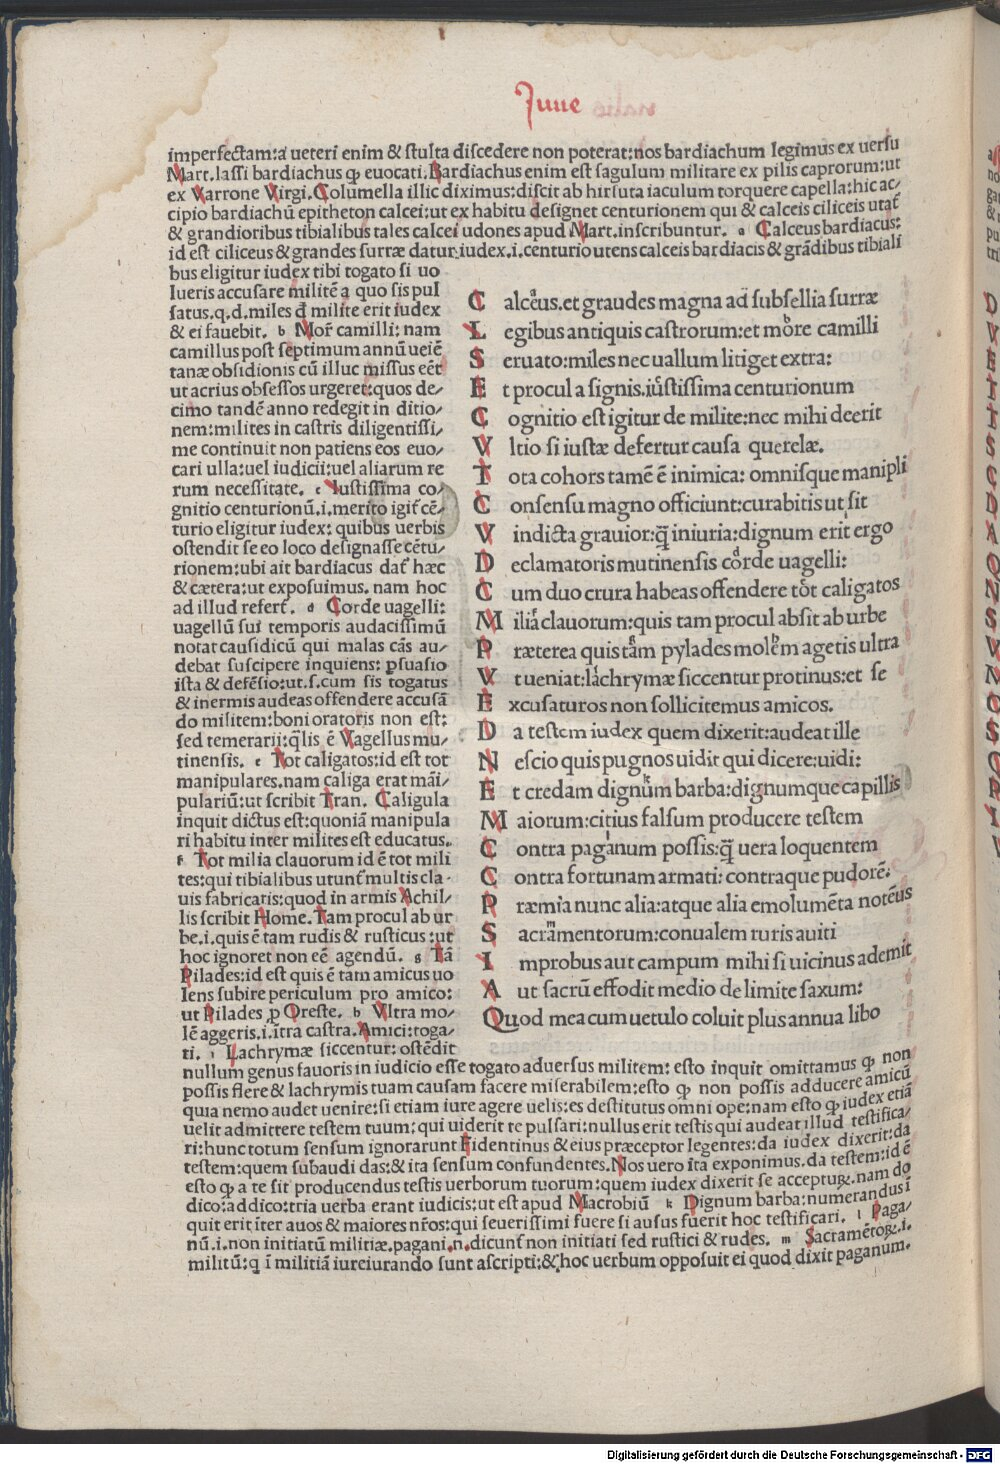 Juue
imperfectam:a ueteri enim & stulta discedere non poterat:nos bardiachum legimus ex uersu
Mart.lassi bardiachus ꝙ euocati.Bardiachus enim est sagulum militare ex pilis caprorum:ut
ex Varrone Virgi.Columella illic diximus:discit ab hirsuta iaculum torquere capella:hic ac/
cipio bardiachū epitheton calcei:ut ex habitu designet centurionem qui & calceis ciliceis utat᷑
& grandioribus tibialibus tales calcei udones apud Mart.inscribuntur. a Calceus bardiacus:
id est ciliceus & grandes surræ datur:iudex.i.centurio utens calceis bardiacis & grādibus tibiali
bus eligitur iudex tibi togato si uo
lueris accusare militē a quo sis pul
satus.q.d.miles đ milite erit iudex
& ei fauebit. b Mor̄ camilli: nam
camillus post septimum annū ueiē
tanæ obsidionis cū illuc missus eēt
ut acrius obsessos urgeret:quos de/
cimo tandē anno redegit in ditio/
nem:milites in castris diligentissi/
me continuit non patiens eos euo/
cari ulla:uel iudicii:uel aliarum re
rum necessitate. c Iustissima co/
gnitio centurionū.i.merito igit᷑ cē/
turio eligitur iudex: quibus uerbis
ostendit se eo loco designasse cētu/
rionem:ubi ait bardiacus dat᷑ hæc
& cætera:ut exposuimus. nam hoc
ad illud refert᷑. d Corde uagelli:
uagellū sui temporis audacissimū
notat causidicū qui malas cās au/
debat suscipere inquiens: ꝑsuasio
ista & defēsio:ut.s.cum sis togatus
& inermis audeas offendere accusā
do militem:boni oratoris non est:
sed temerarii:q̄lis ē Vagellus mu/
tinensis. e Tot caligatos:id est tot
manipulares.nam caliga erat māi/
pulariū:ut scribit Tran. Caligula
inquit dictus est:quoniā manipula
ri habitu inter milites est educatus.
f. Tot milia clauorum id ē tot mili
tes:qui tibialibus utunt᷑ multis cla
uis fabricatis:quod in armis Achil/
lis scribit Home. Tam procul ab ur
be.i.quis ē tam rudis & rusticus :ut
hoc ignoret non eē agendū. g Tā
Pilades:id est quis ē tam amicus uo
lens subire periculum pro amico:
ut Pilades ꝑ Oreste. h Vltra mo/
lē aggeris.i.ītra castra.Amici:toga/
ti. i Lachrymæ siccentur: ostēdit
C alceus.et graudes magna ad subsellia surræ
L egibus antiquis castrorum:et more camilli
S eruato:miles nec uallum litiget extra:
E t procul a signis.iustissima centurionum
C ognitio est igitur de milite:nec mihi deerit
V ltio si iustæ defertur causa querelæ.
T ota cohors tamē ē inimica: omnisque manipli
C onsensu magno officiunt:curabitis ut sit
V indicta grauior:q̄ iniuria:dignum erit ergo
D eclamatoris mutinensis corde uagelli:
C um duo crura habeas offendere tot caligatos
M ilia clauorum:quis tam procul absit ab urbe
P ræterea quis tam pylades molem agetis ultra
V t ueniat:lachrymæ siccentur protinus:et se
E xcusaturos non sollicitemus amicos.
D a testem iudex quem dixerit:audeat ille
N escio quis pugnos uidit qui dicere:uidi:
E t credam dignum barba:dignumque capillis
M aiorum:citius falsum producere testem
C ontra paganum possis:q̄ uera loquentem
C ontra fortunam armati: contraque pudorē:
P ræmia nunc alia:atque alia emolumēta notēus
S acramentorum:conualem ruris auiti
I mprobus aut campum mihi si uicinus ademit
A ut sacrū effodit medio de limite saxum:
Quod mea cum uetulo coluit plus annua libo
nullum genus fauoris in iudicio esse togato aduersus militem: esto inquit omittamus ꝙ non
possis flere & lachrymis tuam causam facere miserabilem:esto ꝙ non possis adducere amicū
quia nemo audet uenire:si etiam iure agere uelis:es destitutus omni ope:nam esto ꝙ iudex etiā
uelit admittere testem tuum: qui uiderit te pulsari:nullus erit testis qui audeat illud testifica/
ri:hunc totum sensum ignorarunt Fidentinus & eius præceptor legentes:da iudex dixerit:da
testem:quem subaudi das:& ita sensum confundentes.Nos uero ita exponimus.da testem:id ē
esto ꝙ a te sit producendus testis uerborum tuorum:quem iudex dixerit se accepturꝝ.nam do
dico:addico:tria uerba erant iudicis:ut est apud Macrobiū k Dignum barba:numerandus ī
quit erit īter auos & maiores nr̄os:qui seuerissimi fuere si ausus fuerit hoc testificari. l Paga/
nū.i.non initiatū militiæ.pagani.n.dicunt᷑ non initiati sed rustici & rudes. m Sacramētoꝝ.i.
militū:q ī militiā iureiurando sunt ascripti:& hoc uerbum opposuit ei quod dixit paganum.
Digitalisierung gefördert durch die Deutsche Forschungsgemeinschaft - DFG